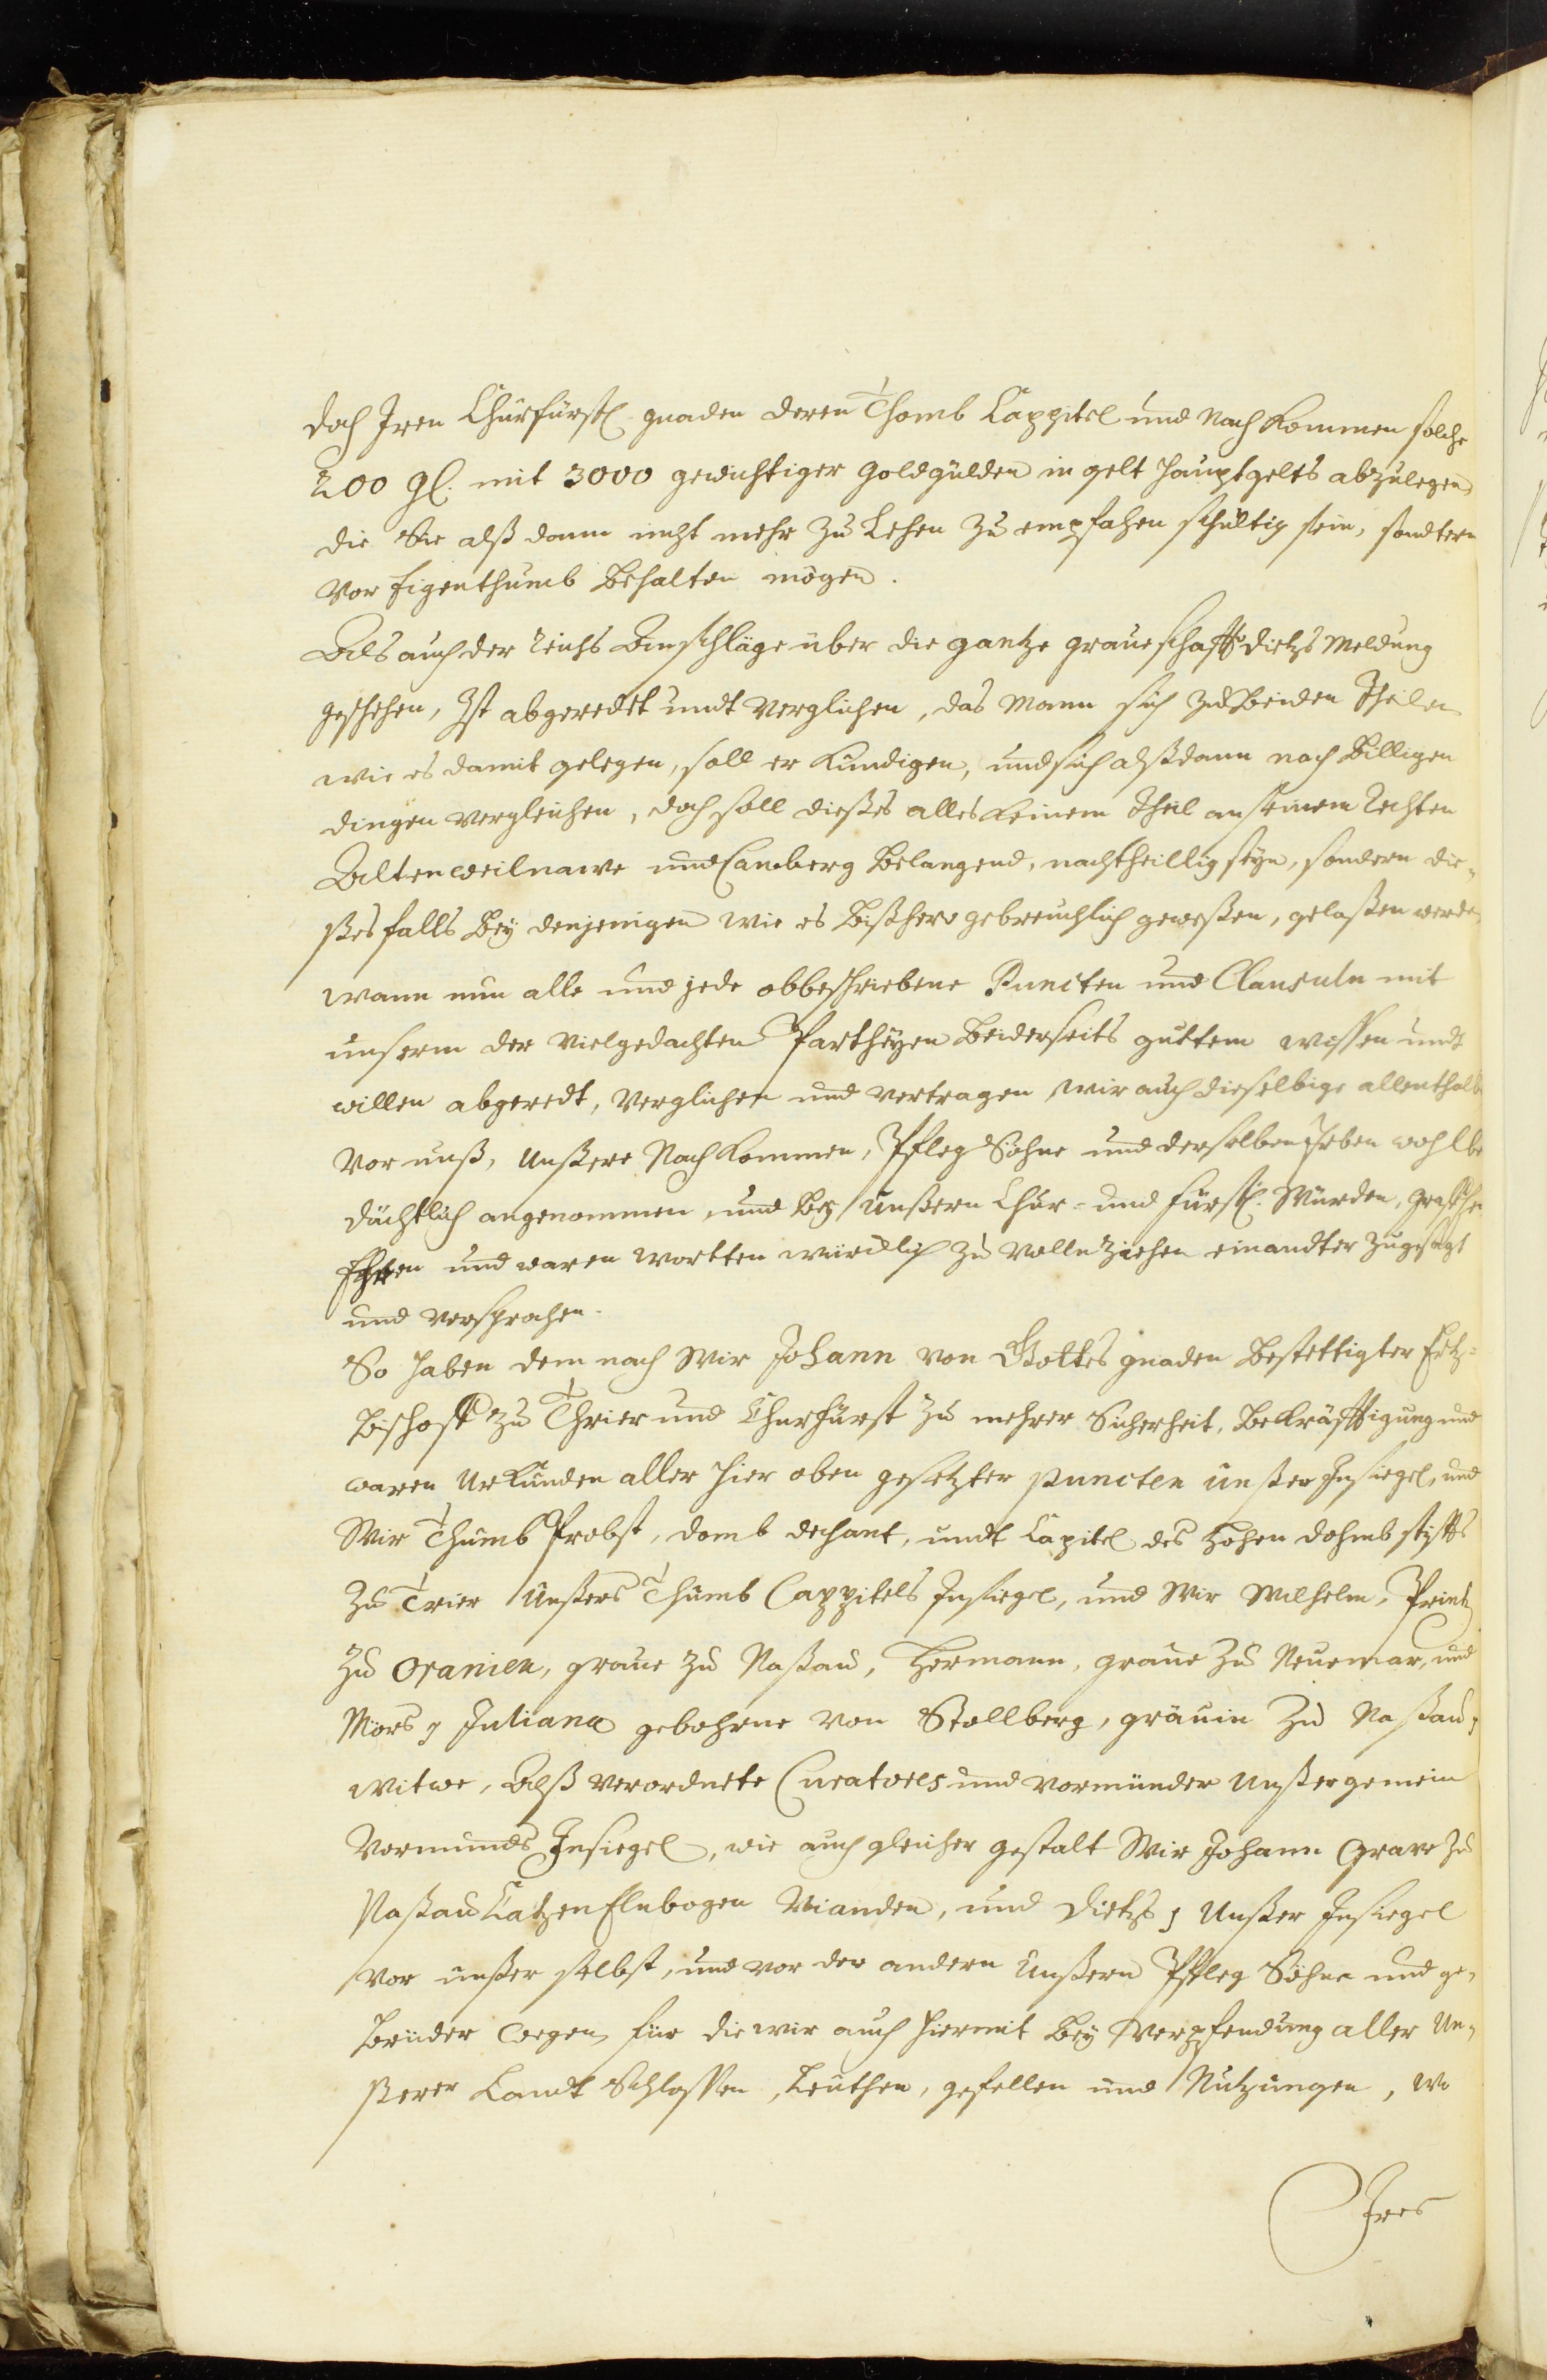 doch Iren Churfürstl. gnaden deren Thomb Cappitel und Nach Kommen solche
200 gl. mit 3000 gewichtiger Goldgülden in gelt Hauptgelts abzulegen
die Sie alß dann nicht mehr zu Lehen zu empfahen schültig sein, sondtern
Vor Eigenthumb Behalten mögen.
Als auch der Reichs Anschläge über die gantze graueschafft Dietz Meldung
geschehen, Ist abgeredet undt Verglichen, das Mann sich zu Beiden Theilen
wie es damit gelegen, soll er Kundigen, und sich alßdann nach Billigen
dingen vergleichen, doch soll dießes alles Keinem Theil an seinem Rechten
Altenweilnawe und Camberg Belangend, nachtheillig seyn, sondern die-
ßes falls Bey denjenigen wie es Bißhero gebreuchlich geweßen, gelaßen werde
Wann nun alle und jede obbeschriebene Puncten und Clausuln mit
unserm der Vielgedachten Partheyen Beiderseits guttem wissen undt
willen abgeredt, Verglichen und vertragen, wir auch dieselbige allenthalb
Vor unß, Unßere Nach Kommen, Pfleg Söhne und derselben Erben wohlbe
dächtlich angenommen, und Bey Unßern Chur- und Fürstl. Würden,
Ehren und waren Wortten würcklich zu Vollnziehen einandter zugesagt
und versprochen.
So haben dem nach Wir Johann von Gottes gnaden Bestettigter Ertz-
Bischoff zu Thrier und Churfürst zu mehrer Sicherheit, BeKräfftigung und
waren UrKunden aller hier oben gesetzter Puncten Unßer Insiegel, und
Wir Thumb Probst, domb dechant, undt Capitel des Hohen dohmb stiffts
Zu Trier Unßers Thumb Cappitels Insiegel, und Wir Wilhelm, Printz
Zu Oranien, graue zu Naßau, Hermann, graue zu Neuemar, und
Mörs, Juliana gebohrne von Stollberg, gräuin Zu Naßau,
Witwe, Alß verordnete Curatores und Vormünder Unßer gemein
Vormunds Insiegel, wie auch gleicher gestalt Wir Johann Grave zu
Naßau CatzenElnbogen Vianden, und Dietz, Unßer Insiegel
Vor unßer selbst, und vor der andern Unßern Pfleg Söhne und ge-
brüder wegen, für die wir auch hiermit Bey Verpfendung aller Un-
ßerer Landt Schlossen, Leuthen, gefellen und Nutzungen, wo
Ires